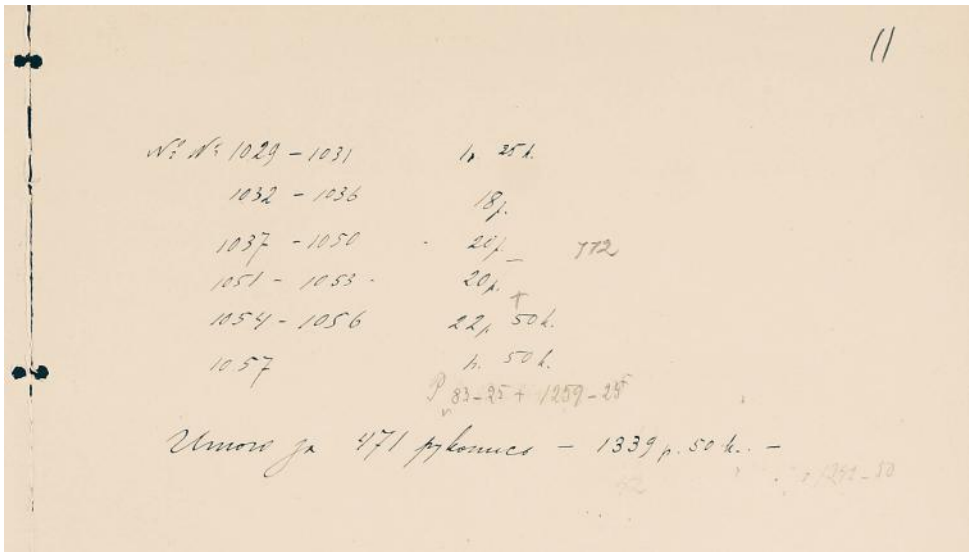 11
№ № 1029 – 1031 1р 25к.
1032 – 1036 18р.
1037 – 1050 20р.
1051 – 1053 20р.
1054 – 1056 22р 50к.
1057 1р. 50к.
Р 83–25 + 1259–25
Итого за 471 рукопись – 1339 р. 50 к. –